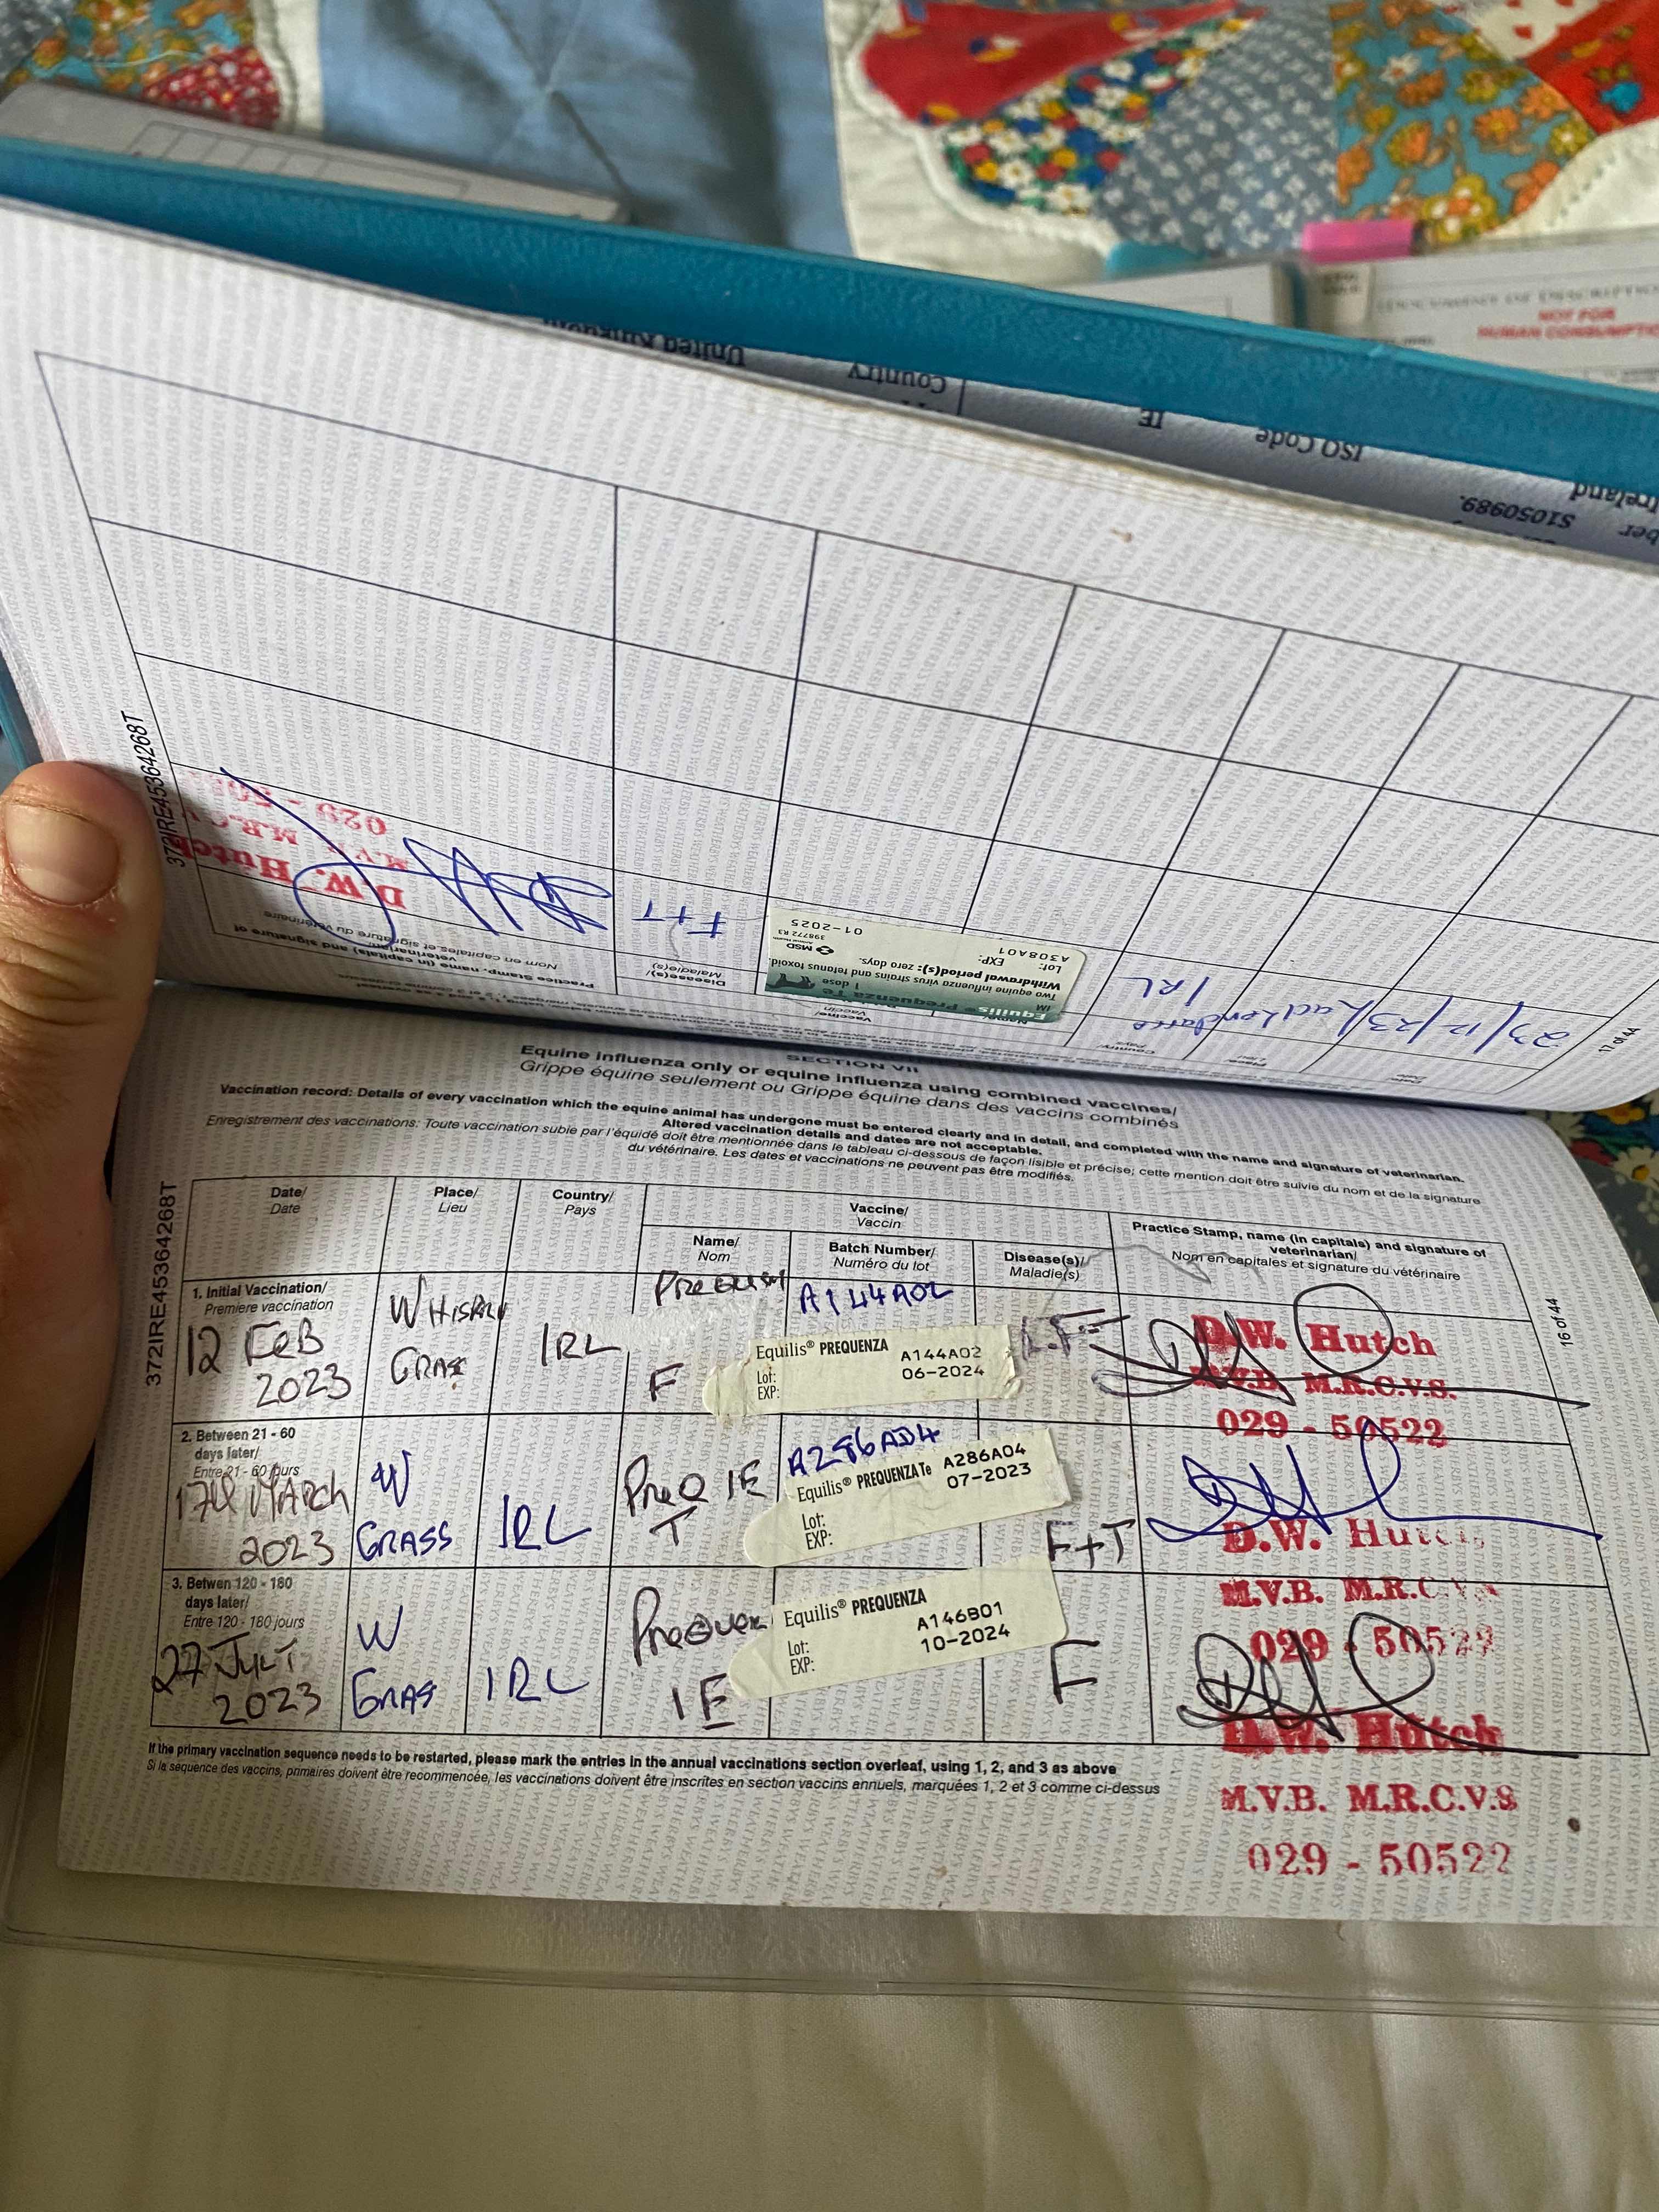 DOCUMENT OF DESCRIPTIO
NOT FOR
HUMAN CONSUMPTIO
United Kingdom
Country
IE
ISO Code
Ireland
S1050989.
ber
372IRE45364268T
17 of 44
Date/
Date
Place/
Lieu
Country/
Pays
Vaccine/
Vaccin
Name/
Disease(s)/
Maladie(s)
Practice Stamp, name (in capitals) and signature of
veterinarian/
Nom en capitales et signature du vétérinaire
23/12/23
IRL
Equilis® Prequenza Te
IM 1 dose
Two equine influenza virus strains and tetanus toxoid.
Withdrawal period(s): zero days.
Lot:
EXP:
A308A01
01-2025
MSD
Animal Health
398772 R3
F+T
D.W. Hutch
M.V.
M.R.C.V
029 - 50
SECTION VII
Equine influenza only or equine influenza using combined vaccines/
Grippe équine seulement ou Grippe équine dans des vaccins combinés
Vaccination record: Details of every vaccination which the equine animal has undergone must be entered clearly and in detail, and completed with the name and signature of veterinarian.
Altered vaccination details and dates are not acceptable.
Enregistrement des vaccinations: Toute vaccination subie par l'équidé doit être mentionnée dans le tableau ci-dessous de façon lisible et précise; cette mention doit être suivie du nom et de la signature
du vétérinaire. Les dates et vaccinations ne peuvent pas être modifiés.
372IRE45364268T
16 of 44
Date/
Date
Place/
Lieu
Country/
Pays
Vaccine/
Vaccin
Name/
Nom
Batch Number/
Numéro du lot
Disease(s)/
Maladie(s)
Practice Stamp, name (in capitals) and signature of
veterinarian/
Nom en capitales et signature du vétérinaire
1. Initial Vaccination/
Premiere vaccination
12 FEB
2023
GRASS
IRL
F
A144A02
Equilis® PREQUENZA
Lot: A144A02
EXP: 06-2024
D.W. Hutch
M.V.B. M.R.C.V.S.
029 - 50522
2. Between 21 - 60
days later/
Entre 21 - 60 jours
17th MARCH
2023
W
GRASS
IRL
PREQ IE
T
A286A04
Equilis® PREQUENZA Te
Lot: A286A04
EXP: 07-2023
F+T
D.W. Hutc
M.V.B. M.R.C.V.S
029 - 50522
3. Betwen 120 - 180
days later/
Entre 120 - 180 jours
27 JULY
2023
W
GRAS
IRL
IE
Equilis® PREQUENZA
Lot: A146B01
EXP: 10-2024
F
D.W. Hutch
M.V.B. M.R.C.V.S
029 - 50522
If the primary vaccination sequence needs to be restarted, please mark the entries in the annual vaccinations section overleaf, using 1, 2, and 3 as above
Si la séquence des vaccins, primaires doivent être recommencée, les vaccinations doivent être inscrites en section vaccins annuels, marquées 1, 2 et 3 comme ci-dessus